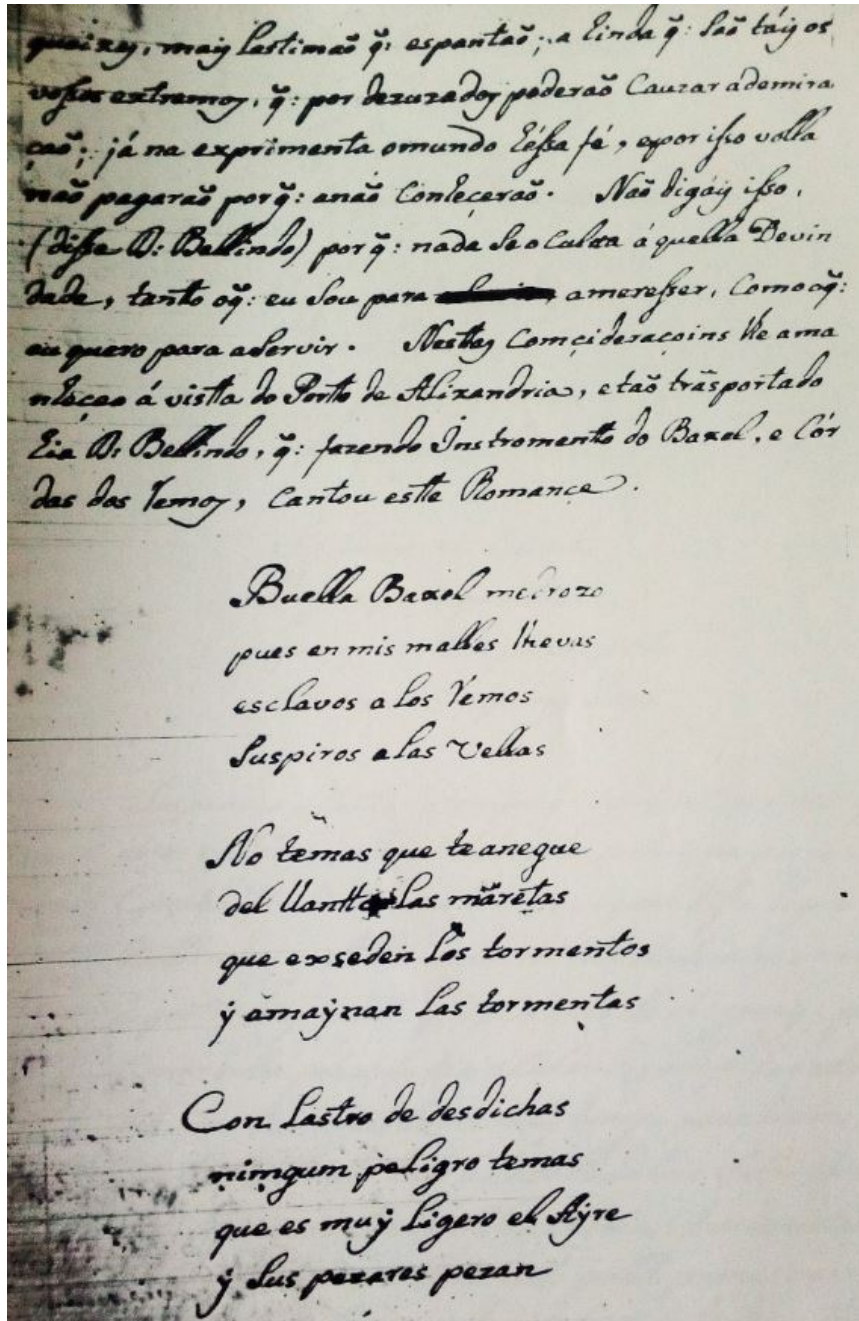 queixas, mais lastimaõ q̃: espantaõ; a hinda q̃: saõ tais os
vossos extremos, q̃: por dezuzados poderaõ Cauzar ademira
çaõ; já na exprimenta omundo héssa fé, epor isso vossa
naõ pagaraõ porq̃: anaõ Conheceraõ. Naõ digais isso,
(disse D: Bellindo) porq̃: nada se oculta á quella Devin
dade, tanto oq̃: eu sou para amaresser, Como oq̃:
eu quero para aservir. Nestas Comçideraçoins lhe ama
nheceo á vistta do Portto de Alixandria, e taõ trãsportado
hia D: Bellindo, q̃: fazendo Instromentto do Baxel, e Cór
das dos Remos, Cantou estte Romançe.
Buella Baxel medrozo
pues en mis malles llevas
esclavos a los Remos
Suspiros a las Vellas
No temas que te anegue
del llantto las mãretas
que exseden los tormentos
ÿ amaÿnan las tormentas
Con lastro de desdichas
nimgum peligro temas
que es muÿ ligero el Aÿre
ÿ sus pezares pezan